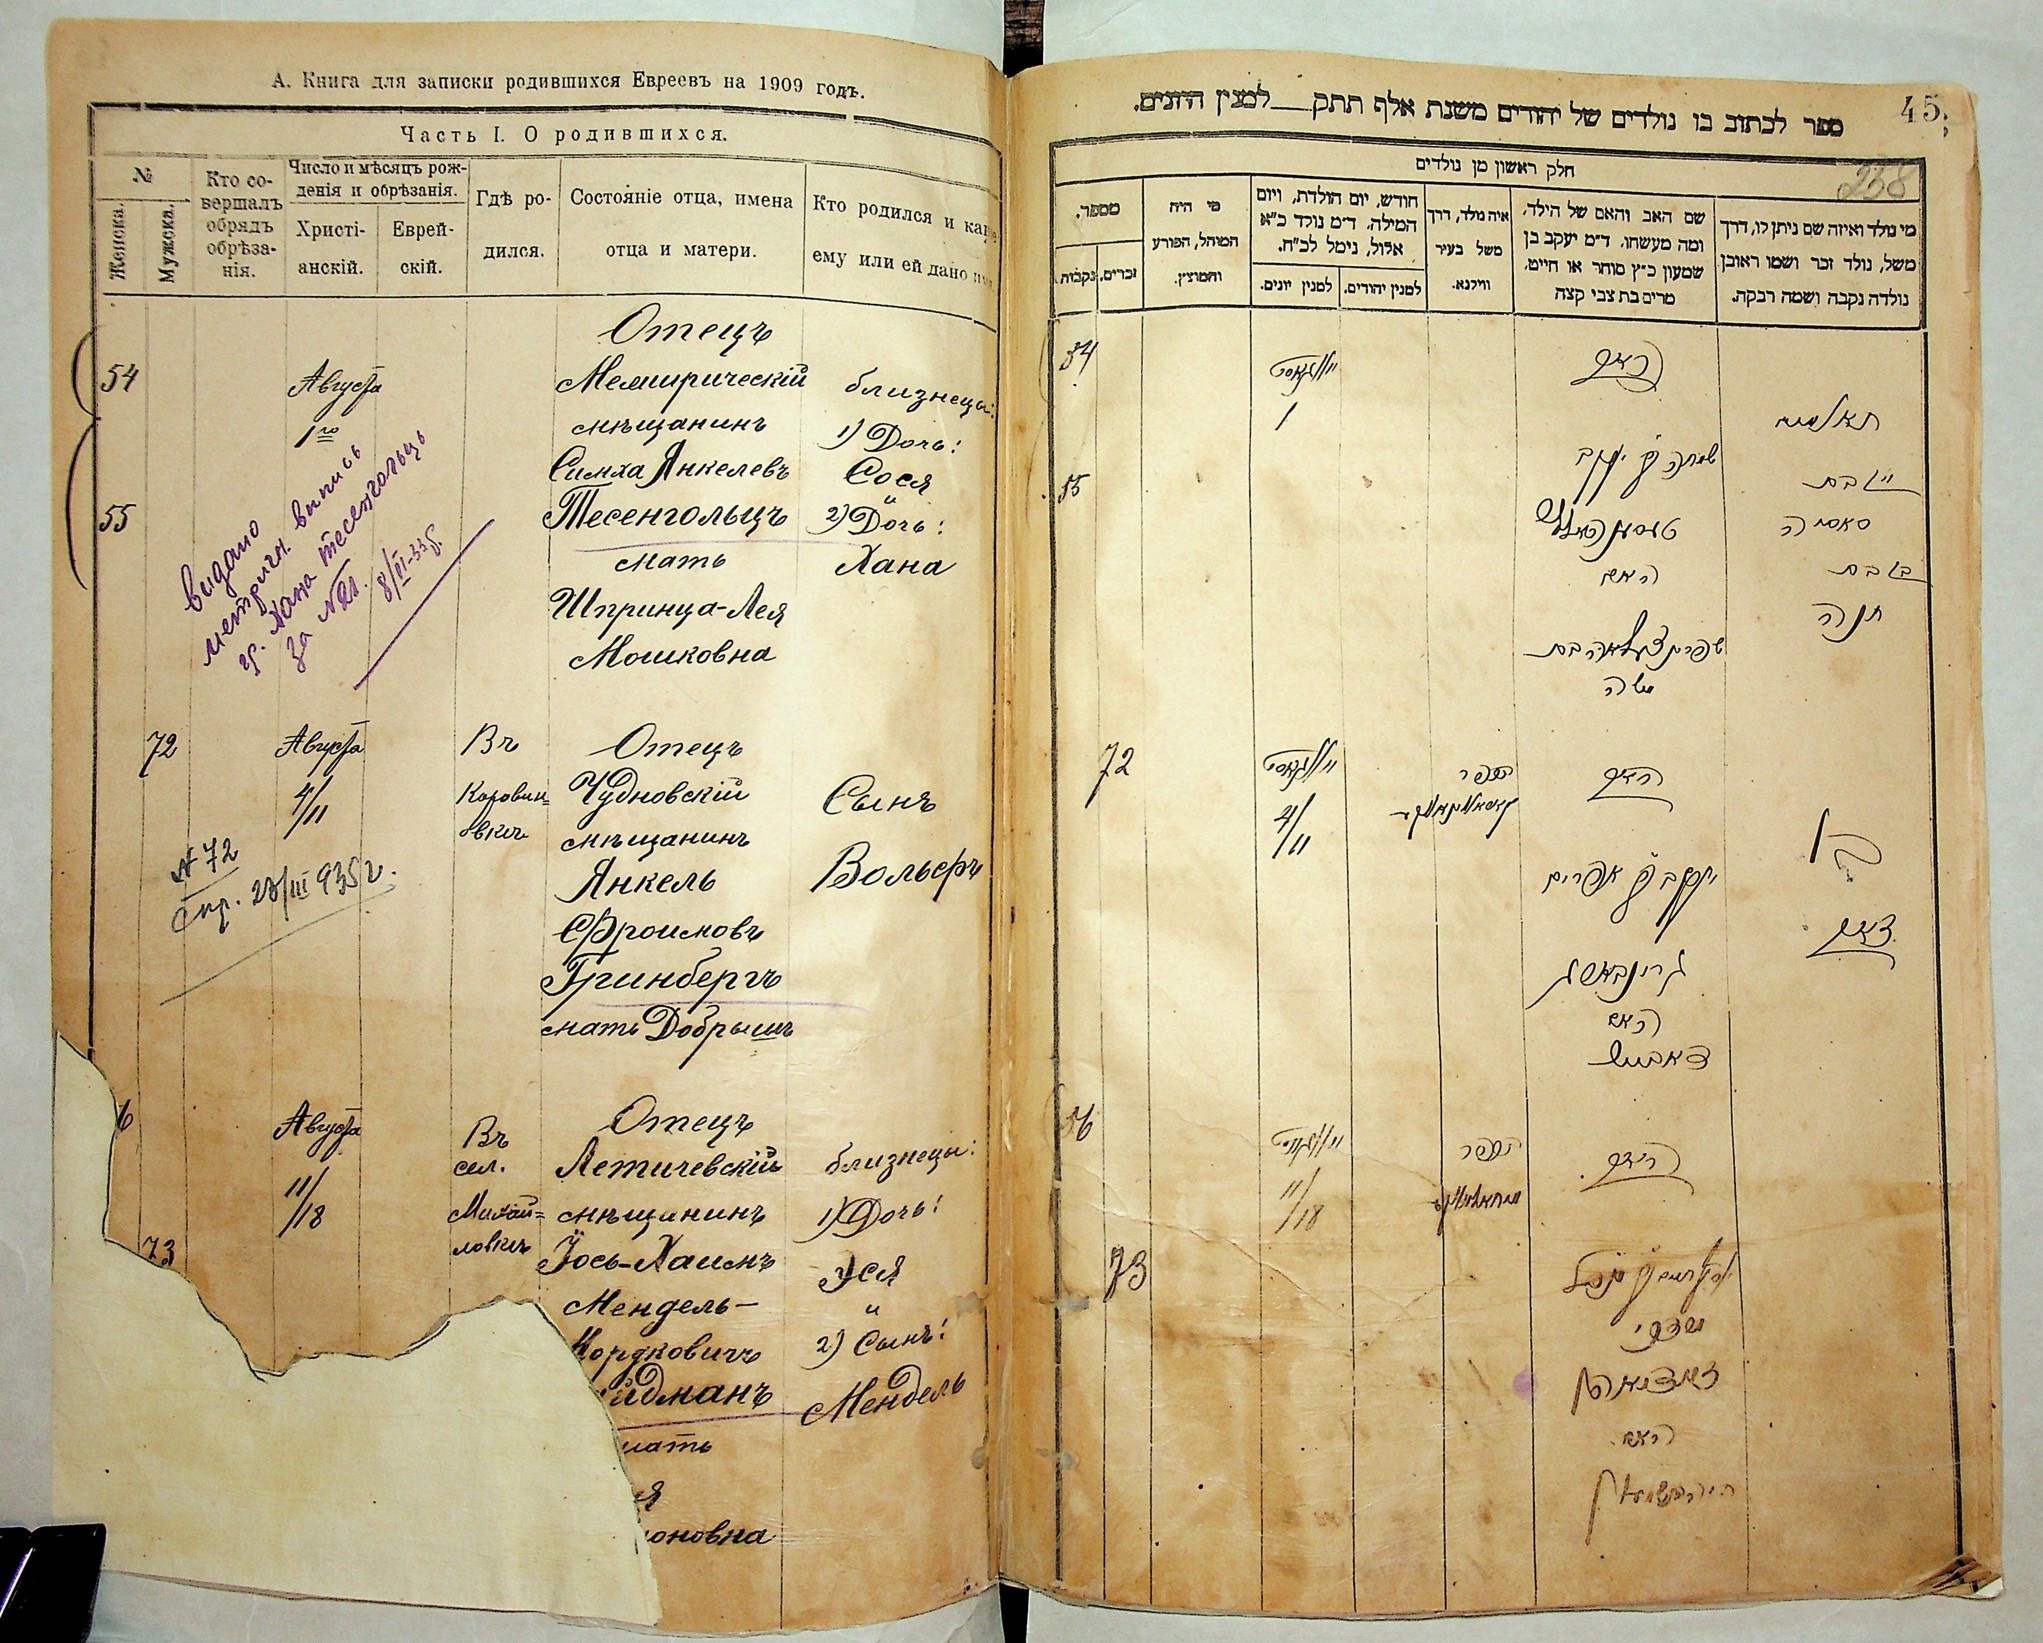 А. Книга для записки родившихся Евреевъ на 1909 годъ.
Часть I. О родившихся.
№
Женска.
Мужска.
Кто со-
вершалъ
обрядъ
обрѣза-
нія.
Число и мѣсяцъ рож-
денія и обрѣзанія.
Христі-
анскій.
Еврей-
скій.
Гдѣ ро-
дился.
Состояніе отца, имена
отца и матери.
Кто родился и какое
ему или ей дано имя.
54
55
Августа
1го
Отецъ
Мемирическій
мѣщанинъ
Симха Янкелевъ
Тесенгольцъ
мать
Шпринца-Лея
Мошковна
близнецы:
1) Дочь:
Сося
и
2) Дочь:
Хана
видано
метричн. випись
гр. Хана Тесенгольць
за №21. 8/III-33 г.
72
Августа
4/11
Въ
Коровин=
овкѣ
Отецъ
Чудновскій
мѣщанинъ
Янкель
Фроимовъ
Гринбергъ
мать Добрышъ
Сынъ
Вольфъ
№ 72
спр. 28/III 935 г.
6
73
Августа
11/18
Въ
сел.
Михай=
ловкѣ
Отецъ
Летичевскій
мѣщанинъ
Іось-Хаимъ
Мендель-
Мордковичъ
йдманъ
мать
я
моновна
близнецы:
1) Дочь:
Эся
и
2) Сынъ:
Мендель
45
258
ספר לכתוב בו נולדים של יהודים משנת אלף תתק למנין היונים.
חלק ראשון מן נולדים
מספר.
נקבות.
זכרים.
מי היה
המוהל, הפורע
והמוצץ.
חודש, יום הולדת, ויום
המילה. ד"מ נולד כ"א
אלול, נימל לכ"ח.
למנין יונים.
למנין יהודים.
איה נולד, דרך
משל בעיר
ווילנא.
שם האב והאם של הילד,
ומה מעשהו. ד"מ יעקב בן
שמעון כ"ץ סוחר או חייט,
מרים בת צבי קצה
מי נולד ואיזה שם ניתן לו, דרך
משל, נולד זכר ושמו ראובן
נולדה נקבה ושמה רבקה.
54
55
1
האב
שמחה בן יעקב
טעסענהאלץ
האם
שפרינצע לאה בת
משה
תאומים
א בת
סאסיה
ב בת
חנה
72
4/11
האב
יעקב בן אפרים
גרינבערג
האם
דאבריש
בן
וואלף
56
73
11/18
האב
האם